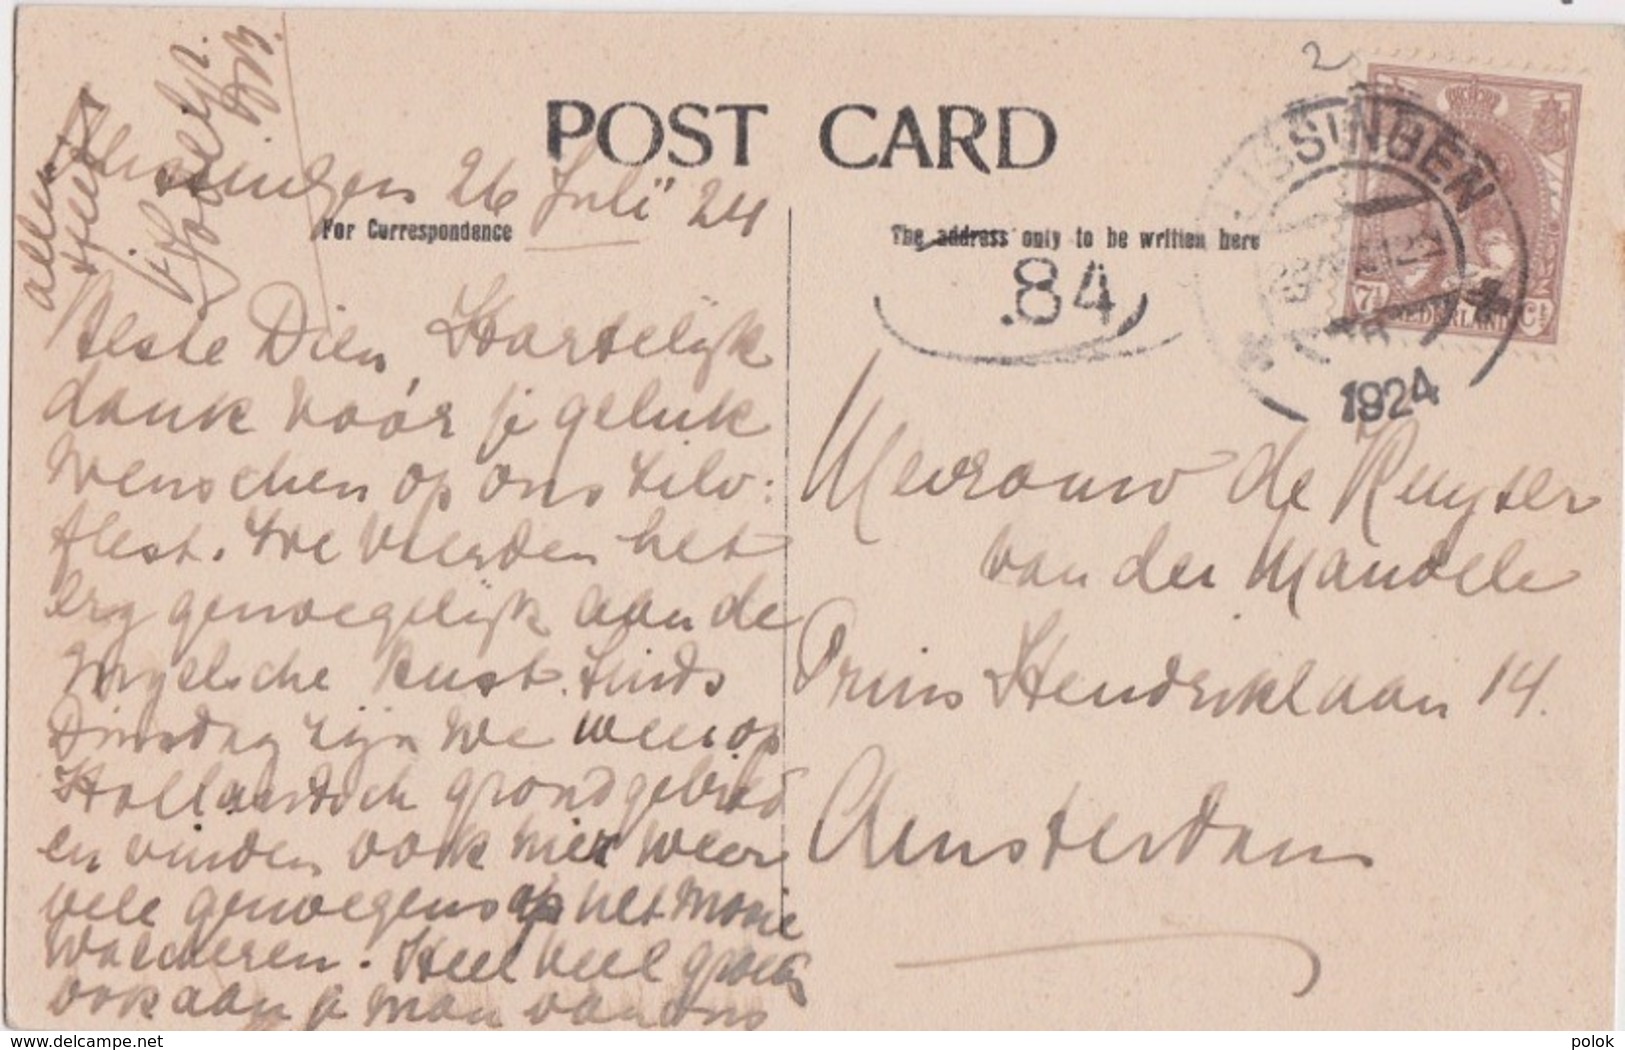 POST CARD
For Correspondence
The address only to be written here
Vlissingen 26 Juli 24
Beste Dien, Hartelijk
dank voór je geluk
wenschen op ons zilv:
feest. We vierden het
erg genoegelijk aan de
Engelsche kust. Sinds
Dinsdag zijn we weer op
Hollandsch grondgebied
en vinden ook hier weer
vele genoegens op het mooie
Walcheren. Heel veel groets
ook aan je man van ons
allen
t Huet
Mevrouw de Ruyter
van der Mandele
Prins Hendriklaan 14.
Amsterdam
84
2
VLISSINGEN
1924
7½ Ct
NEDERLAND
www.delcampe.net
polok